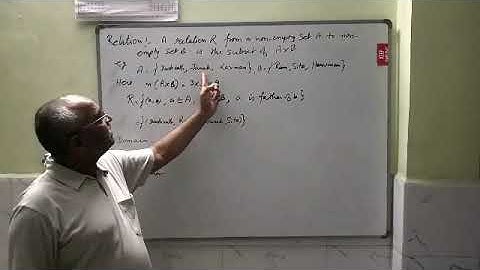 Relation:- A relation R from a non-empty set A to non-
empty set B is the subset of A×B
Eg A = {Dashrath, Janak, Laxman}, B = {Ram, Sita, Hanuman}
Here n(A×B) = 3×
R = {(a,b), a∈A, B, a is father of b}
= {(Dashrath, Sita)}
Domain